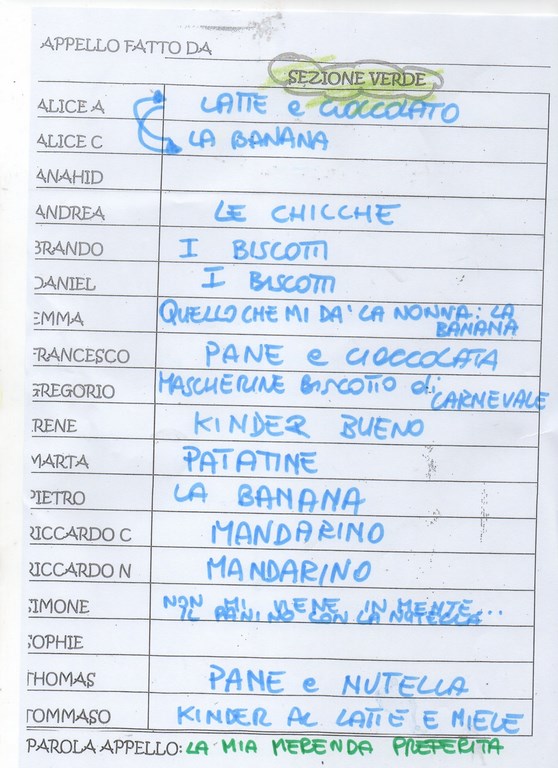 APPELLO FATTO DA
SEZIONE VERDE
ALICE A LATTE e CIOCCOLATO
ALICE C LA BANANA
ANAHID
ANDREA LE CHICCHE
BRANDO I BISCOTTI
DANIEL I BISCOTTI
EMMA QUELLO CHE MI DA' LA NONNA: LA
BANANA
FRANCESCO PANE e CIOCCOLATA
GREGORIO MASCHERINE BISCOTTO di
CARNEVALE
IRENE KINDER BUENO
MARTA PATATINE
PIETRO LA BANANA
RICCARDO C MANDARINO
RICCARDO N MANDARINO
SIMONE NON MI VIENE IN MENTE...
IL PANINO CON LA NUTELLA
SOPHIE
THOMAS PANE e NUTELLA
TOMMASO KINDER AL LATTE E MIELE
PAROLA APPELLO: LA MIA MERENDA PREFERITA